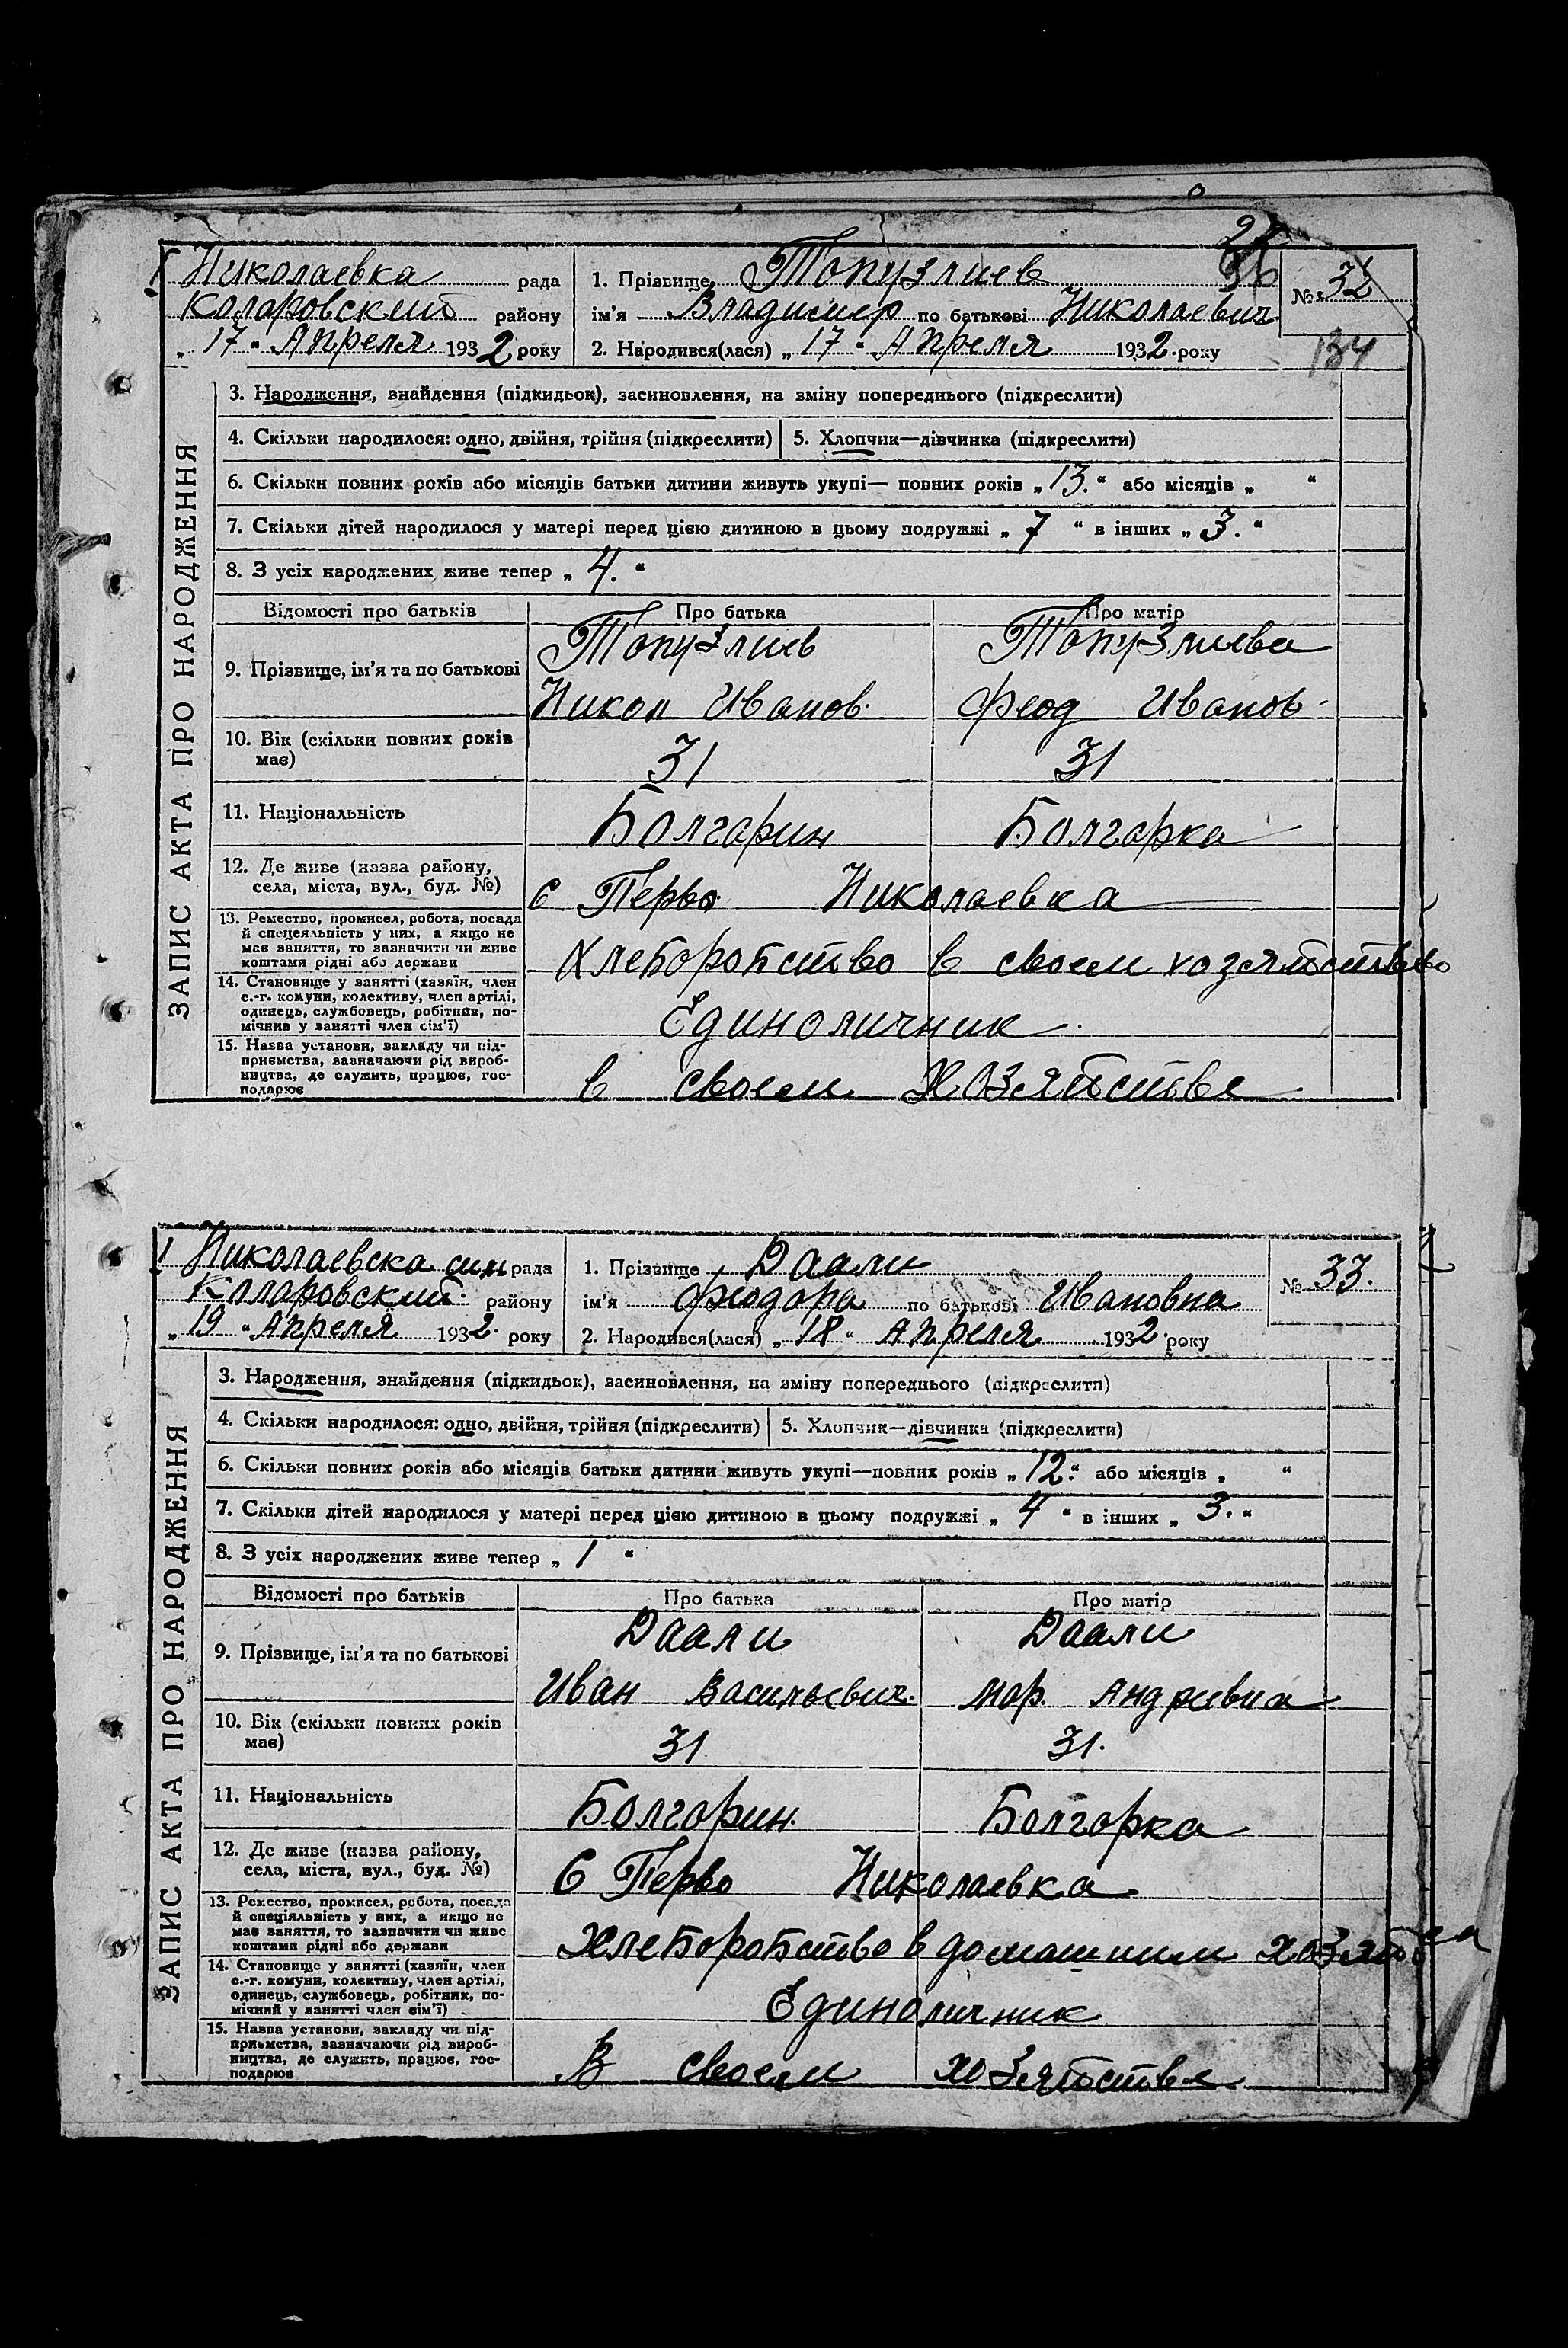 I Николаевка рада
Коларовский району
„ 17 " Апреля 1932 року
1. Прізвище Топузлиев
ім'я Владимер по батькові Николаевич
2. Народився(лася) „ 17 " Апреля 1932 року
№ 32
134
ЗАПИС АКТА ПРО НАРОДЖЕННЯ
3. Народження, знайдення (підкидьок), засиновлення, на зміну попереднього (підкреслити)
4. Скільки народилося: одно, двійня, трійня (підкреслити) 5. Хлопчик—дівчинка (підкреслити)
6. Скільки повних років або місяців батьки дитини живуть укупі— повних років „ 13. " або місяців „ "
7. Скільки дітей народилося у матері перед цією дитиною в цьому подружжі „ 7 " в інших „ 3. "
8. З усіх народжених живе тепер „ 4. "
Відомості про батьків Про батька Про матір
9. Прізвище, ім'я та по батькові
Топузлиев Топузлиева
Никол Иванов. Феод Иванов
10. Вік (скільки повних років
має)
31 31
11. Національність Болгарин Болгарка
12. Де живе (назва району,
села, міста, вул., буд. №)
с Перво Николаевка
13. Ремество, промисел, робота, посада
й спеціяльність у них, а якщо не
має заняття, то зазначити чи живе
коштами рідні або держави
Хлеборобство в своем хозяйстве
14. Становище у занятті (хазяїн, член
с.-г. комуни, колективу, член артілі,
одинець, службовець, робітник, по-
мічник у занятті член сім'ї)
Единоличник
15. Назва установи, закладу чи під-
приємства, зазначаючи рід вироб-
ництва, де служить, працює, гос-
подарює
в своем хозяйстве
I Николаевска рада
Коларовский району
„ 19 " Апреля 1932. року
1. Прізвище Даали
ім'я Феодора по батькові Ивановна
2. Народився(лася) „ 18 " Апреля 1932 року
№ 33.
ЗАПИС АКТА ПРО НАРОДЖЕННЯ
3. Народження, знайдення (підкидьок), засиновлення, на зміну попереднього (підкреслити)
4. Скільки народилося: одно, двійня, трійня (підкреслити) 5. Хлопчик—дівчинка (підкреслити)
6. Скільки повних років або місяців батьки дитини живуть укупі—повних років „ 12. " або місяців „ "
7. Скільки дітей народилося у матері перед цією дитиною в цьому подружжі „ 4 " в інших „ 3. "
8. З усіх народжених живе тепер „ 1 "
Відомості про батьків Про батька Про матір
9. Прізвище, ім'я та по батькові
Даали Даали
Иван Васильевич. Мар. Андревна
10. Вік (скільки повних років
має)
31 31.
11. Національність Болгорин. Болгорка
12. Де живе (назва району,
села, міста, вул., буд. №)
С Перво Николаевка
13. Ремество, промисел, робота, посада
й спеціяльність у них, а якщо не
має заняття, то зазначити чи живе
коштами рідні або держави
Хлеборобство в домашним
14. Становище у занятті (хазяїн, член
с.-г. комуни, колективу, член артілі,
одинець, службовець, робітник, по-
мічний у занятті член сім'ї)
Единоличник
15. Назва установи, закладу чи під-
приємства, зазначаючи рід вироб-
ництва, де служить, працює, гос-
подарює
В своем хозяйстве